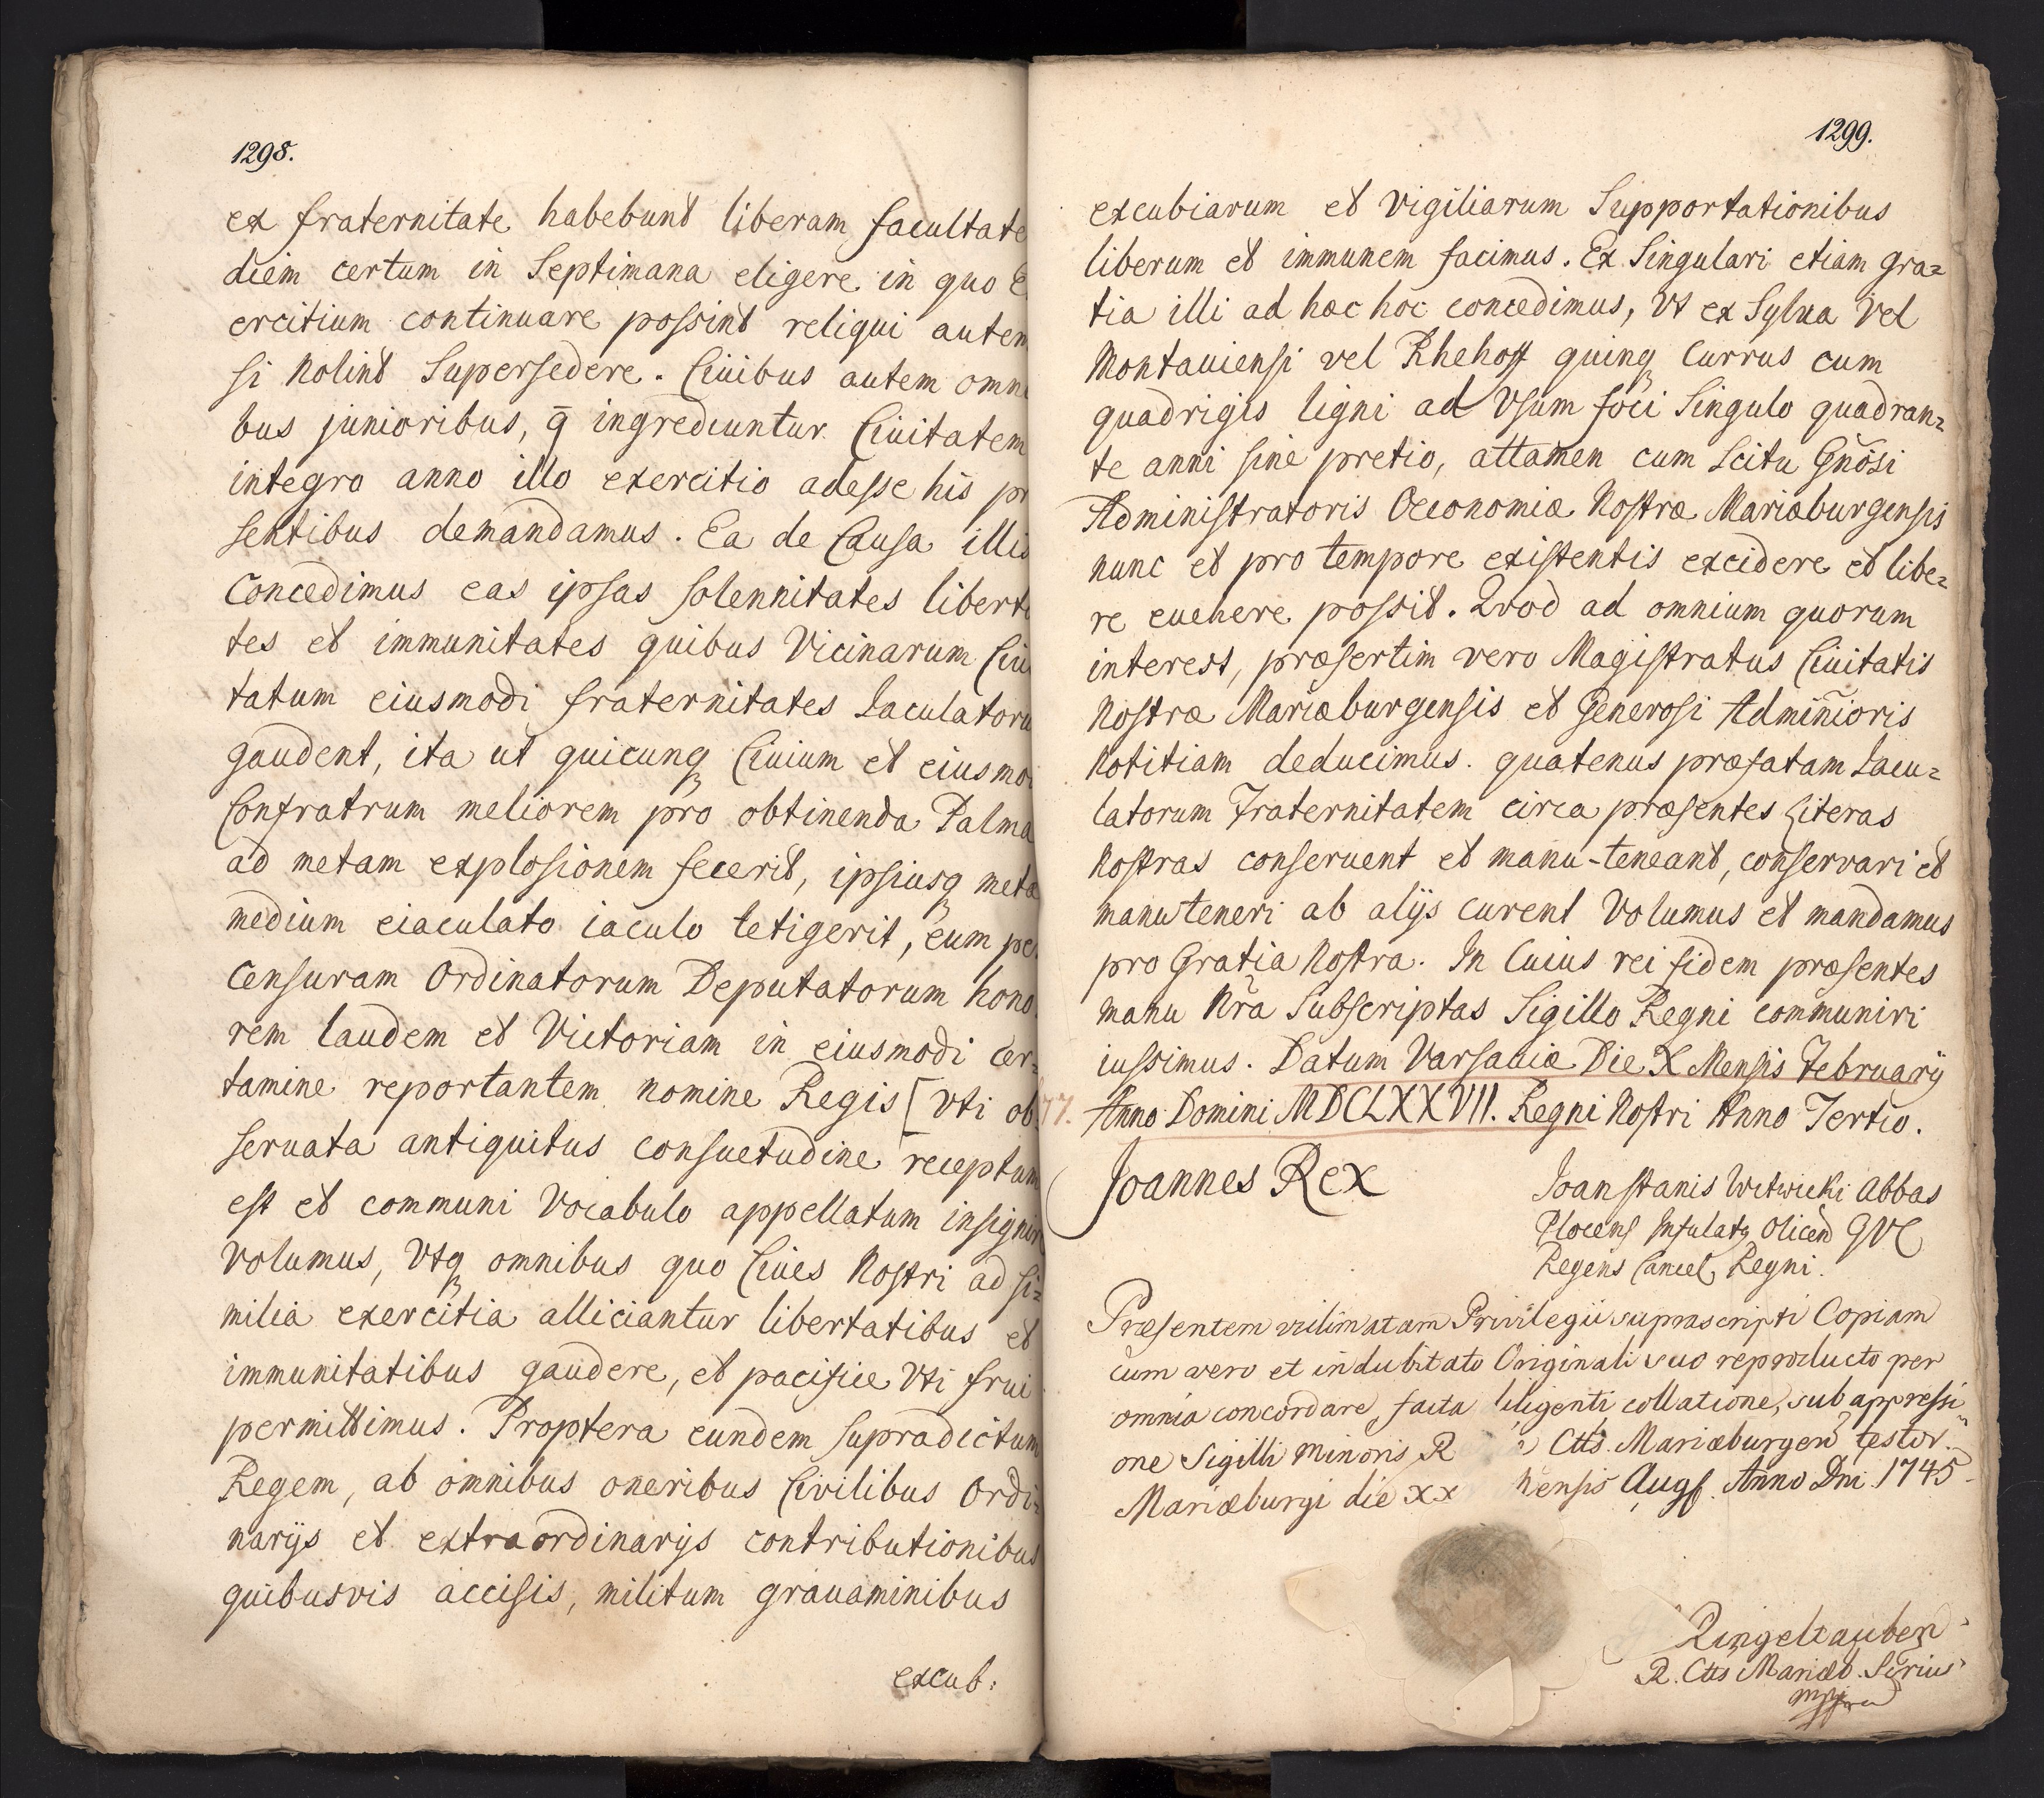 1298.
ex fraternitate habebunt liberam facultate
diem certum in Septimana eligere in quo E
ercitium continuare possint reliqui autem
si nolint Supersedere. Ciuibus autem omni
bus junioribus, q̄ ingrediuntur Ciuitatem
integro anno illo exercitio adesse his pr
sentibus demandamus. Ea de Causa illis
Concedimus eas ipsas solennitates liberta
tes et immunitates quibus Vicinarum Ciui
tatum eiusmodi fraternitates Iaculatoru
gaudent, ita ut quicunq Ciuium et eiusmo
Confratrum meliorem pro obtinenda Palma
ad metam explosionem fecerit, ipsiusq meta
medium eiaculato iaculo tetigerit, eum per
Censuram Ordinatorum Deputatorum hono
rem laudem et Victoriam in eiusmodi cer=
tamine reportantem nomine Regis [vti ob
seruata antiquitus consuetudine receptum
est et communi Vocabulo appellatum insignir
volumus, Vtq omnibus quo Ciues Nostri ad si=
milia exercitia alliciantur libertatibus et
immunitatibus gaudere, et pacifice Vti frui
permittimus. Proptera eundem supradictum
Regem, ab omnibus oneribus Civilibus Ordi=
narijs et extraordinarijs contributionibus
quibusvis accisis, militum grauaminibus
excub:
1299.
excubiarum et vigiliarum Supportationibus
liberum et immunem facimus. Ex Singulari etiam gra=
tia illi ad hæc hoc concedimus, Vt ex Sylua Vel
Montauiensi vel Rhehoff quinq Currus cum
quadrigis ligni ad Vsum foci Singulo quadran=
te anni sine pretio, attamen cum Scitu Gnõsi
Administratoris Oeconomiæ Nostræ Mariæburgensis
nunc et pro tempore existentis excidere et libe=
re euehere possit. Qvod ad omnium quorum
interest, præsertim vero Magistratus Ciuitatis
Nostræ Mariæburgensis et Generosi Adminiõris
Notitiam deducimus. quatenus præfatam Iacu=
latorum Fraternitatem circa præsentes Literas
Nostras conseruent et manu-teneant, conservari et
manuteneri ab alijs curent Volumus et mandamus
pro Gratia Nostra. In Cuius rei fidem præsentes
manu Nr̃a Subscriptas Sigillo Regni communiri
iussimus. Datum Varsauiæ Die X Mensis February
77. Anno Domini MDCLXXVII. Regni Nostri Anno Tertio.
Joannes Rex
Joan Stanis Witwicki Abbas
Plocens Infulatq Olicen GVC
Regens Cancel, Regni.
Præsentem vidimatam Privilegii supra scripti Copiam
cum vero et indubitato Originali suo reproducto per
omnia concordare, facta diligenti collatione, sub appressi
one Sigilli minoris R Ctts. Mariæburgen testor.
Mariæburgi die xx Mensis Augs. Anno Dni 1745
Ringeltauben
R. Ctts Mariæb. Scrius
mppria